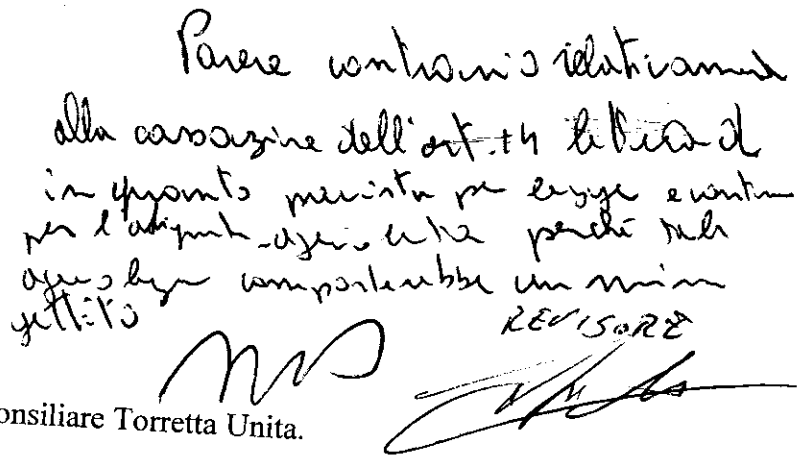 Parere contrario relativamente
alla cassazione dell'art. 14 lettera d
in quanto prevista per legge e contro
per l'aliquota agevolata perché tale
agevolazione comporterebbe un minor
gettito
REVISORE
onsiliare Torretta Unita.